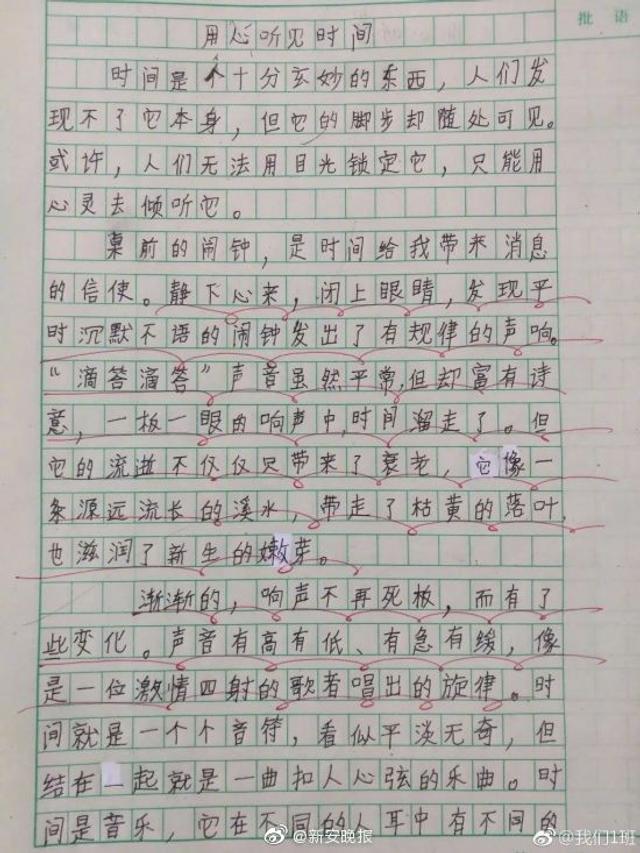 批 语
用心听见时间
时间是个十分玄妙的东西，人们发
现不了它本身，但它的脚步却随处可见。
或许，人们无法用目光锁定它，只能用
心灵去倾听它。
桌前的闹钟，是时间给我带来消息
的信使。静下心来，闭上眼睛，发现平
时沉默不语的闹钟发出了有规律的声响。
“滴答滴答”声音虽然平常，但却富有诗
意，一板一眼的响声中，时间溜走了。但
它的流逝不仅仅只带来了衰老，它像一
条源远流长的溪水，带走了枯黄的落叶，
也滋润了新生的嫩芽。
渐渐的，响声不再死板，而有了
些变化。声音有高有低、有急有缓，像
是一位激情四射的歌者唱出的旋律。时
间就是一个个音符，看似平淡无奇，但
结在一起就是一曲扣人心弦的乐曲。时
间是音乐，它在不同的人耳中有不同的
@新安晚报
@我们1班